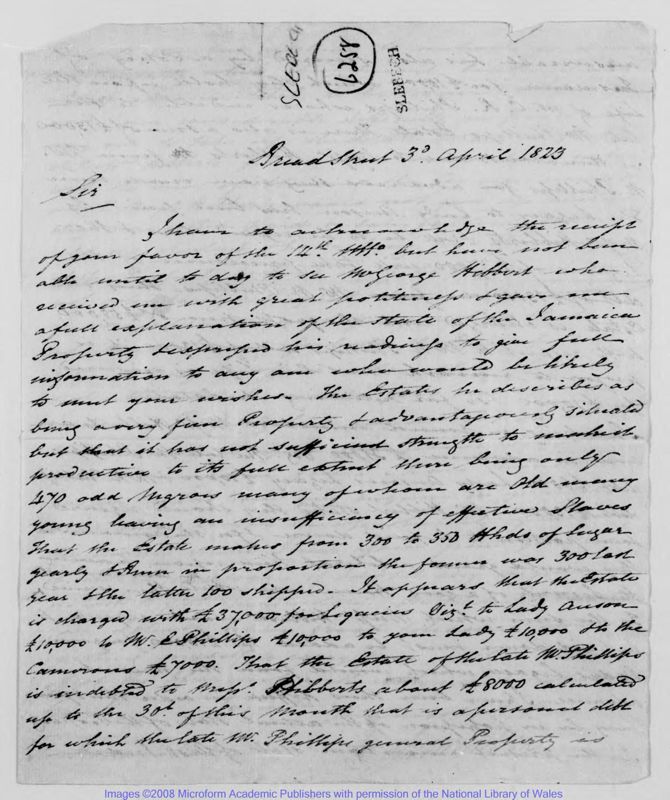 SLEBECH
6258
SLEBECH
Bread Street 3d. April 1823
Sir
I have to acknowledge the receipt
of your favor of the 12th. but have not been
able until to day to see Mr George Hibbert who
received me with great politeness & gave me
a full explanation of the state of the Jamaica
Property & expressed his readiness to give full
information to any one who would be likely
to meet your wishes. The Estate he describes as
being a very fine Property & advantageously situated
but that it has not sufficient strength to make it
productive to its full extent there being only
470 odd Negroes many of whom are Old many
young leaving an insufficiency of effective Slaves
That the Estate makes from 300 to 350 Hhds of Sugar
yearly & Rum in proportion the former was 300 last
year & the latter 100 shipped. It appears that the Estate
is charged with £37,000 for Legacies Vizt. to Lady Anson
£10,000 to Mr. E Phillips £10,000 to your Lady £10,000 & to the
Camerons £7000. That the Estate of the late Mr. Phillips
is indebted to Messrs. Hibberts about £8000 calculated
up to the 30th of this Month that is a personal debt
for which the late Mr. Phillips general Property is
Images ©2008 Microform Academic Publishers with permission of the National Library of Wales